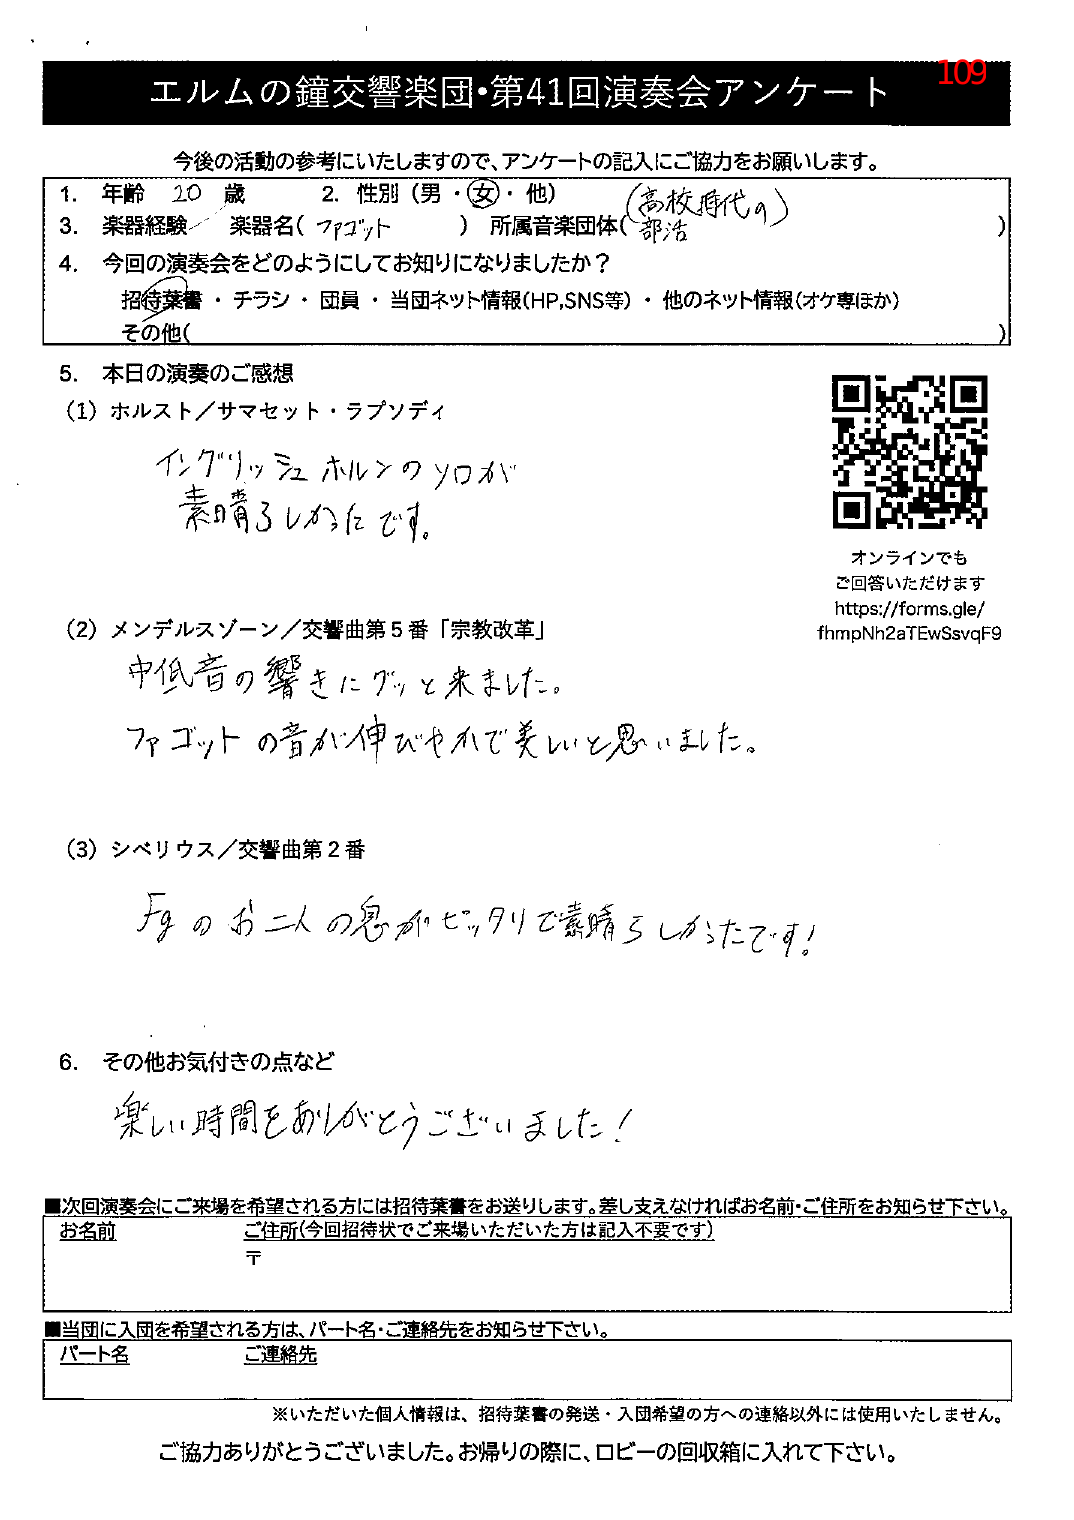 109
エルムの鐘交響楽団・第41回演奏会アンケート
今後の活動の参考にいたしますので、アンケートの記入にご協力をお願いします。
1. 年齢 20 歳 2. 性別（男 ・ 女 ・ 他）
3. 楽器経験 楽器名( ファゴット ) 所属音楽団体( (高校時代の)部活 )
4. 今回の演奏会をどのようにしてお知りになりましたか？
招待葉書 ・ チラシ ・ 団員 ・ 当団ネット情報(HP,SNS等) ・ 他のネット情報(オケ専ほか)
その他( )
5. 本日の演奏のご感想
（1）ホルスト／サマセット・ラプソディ
イングリッシュホルンのソロが
素晴らしかったです。
オンラインでも
ご回答いただけます
https://forms.gle/
fhmpNh2aTEwSsvqF9
（2）メンデルスゾーン／交響曲第５番「宗教改革」
中低音の響きにグッと来ました。
ファゴットの音が伸びやかで美しいと思いました。
（3）シベリウス／交響曲第２番
Fgのお二人の息がピッタリで素晴らしかったです!
6. その他お気付きの点など
楽しい時間をありがとうございました!
■次回演奏会にご来場を希望される方には招待葉書をお送りします。差し支えなければお名前・ご住所をお知らせ下さい。
お名前 ご住所(今回招待状でご来場いただいた方は記入不要です)
〒
■当団に入団を希望される方は、パート名・ご連絡先をお知らせ下さい。
パート名 ご連絡先
※いただいた個人情報は、招待葉書の発送・入団希望の方への連絡以外には使用いたしません。
ご協力ありがとうございました。お帰りの際に、ロビーの回収箱に入れて下さい。